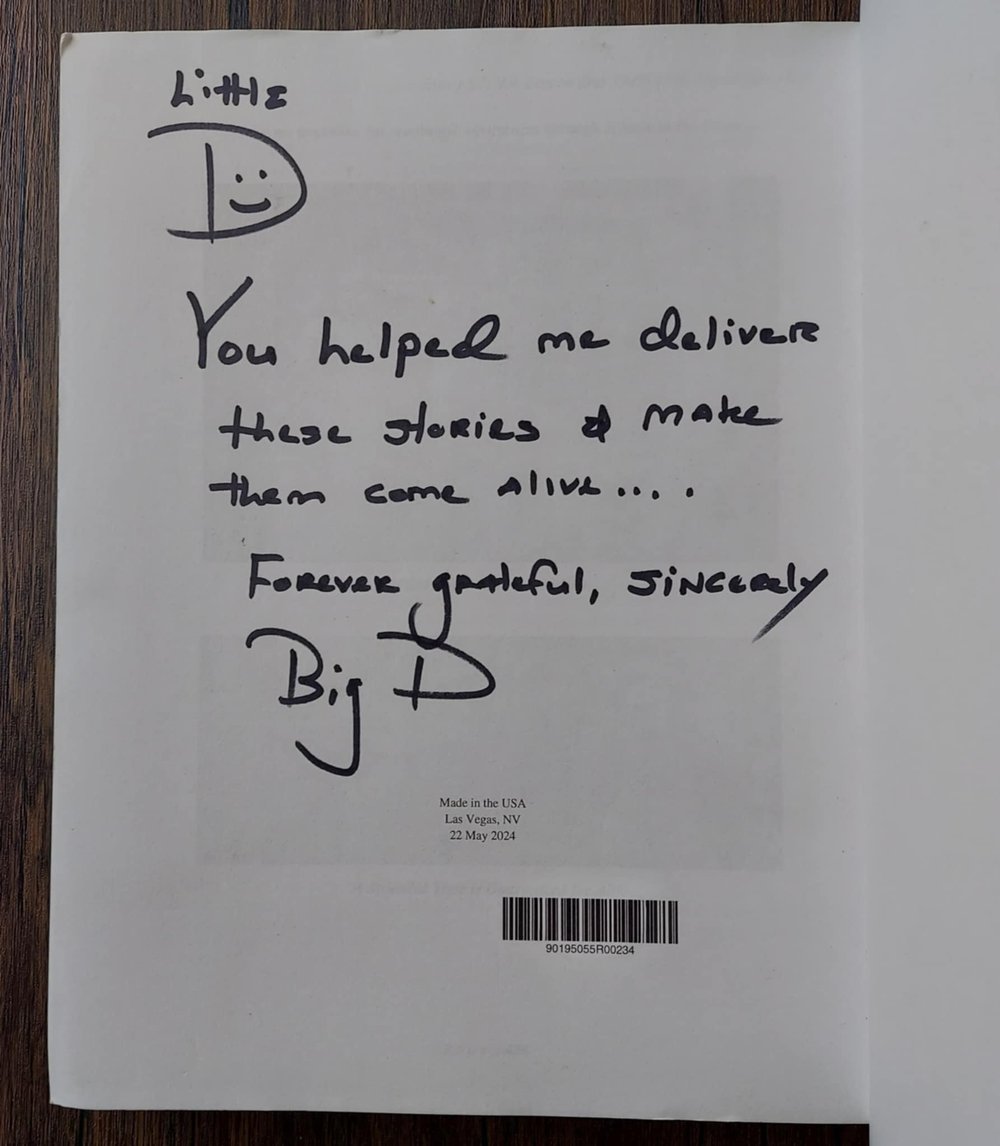 Little
D
You helped me deliver
these stories & make
them come alive....
Forever grateful, sincerely
Big D
Made in the USA
Las Vegas, NV
22 May 2024
90195055R00234